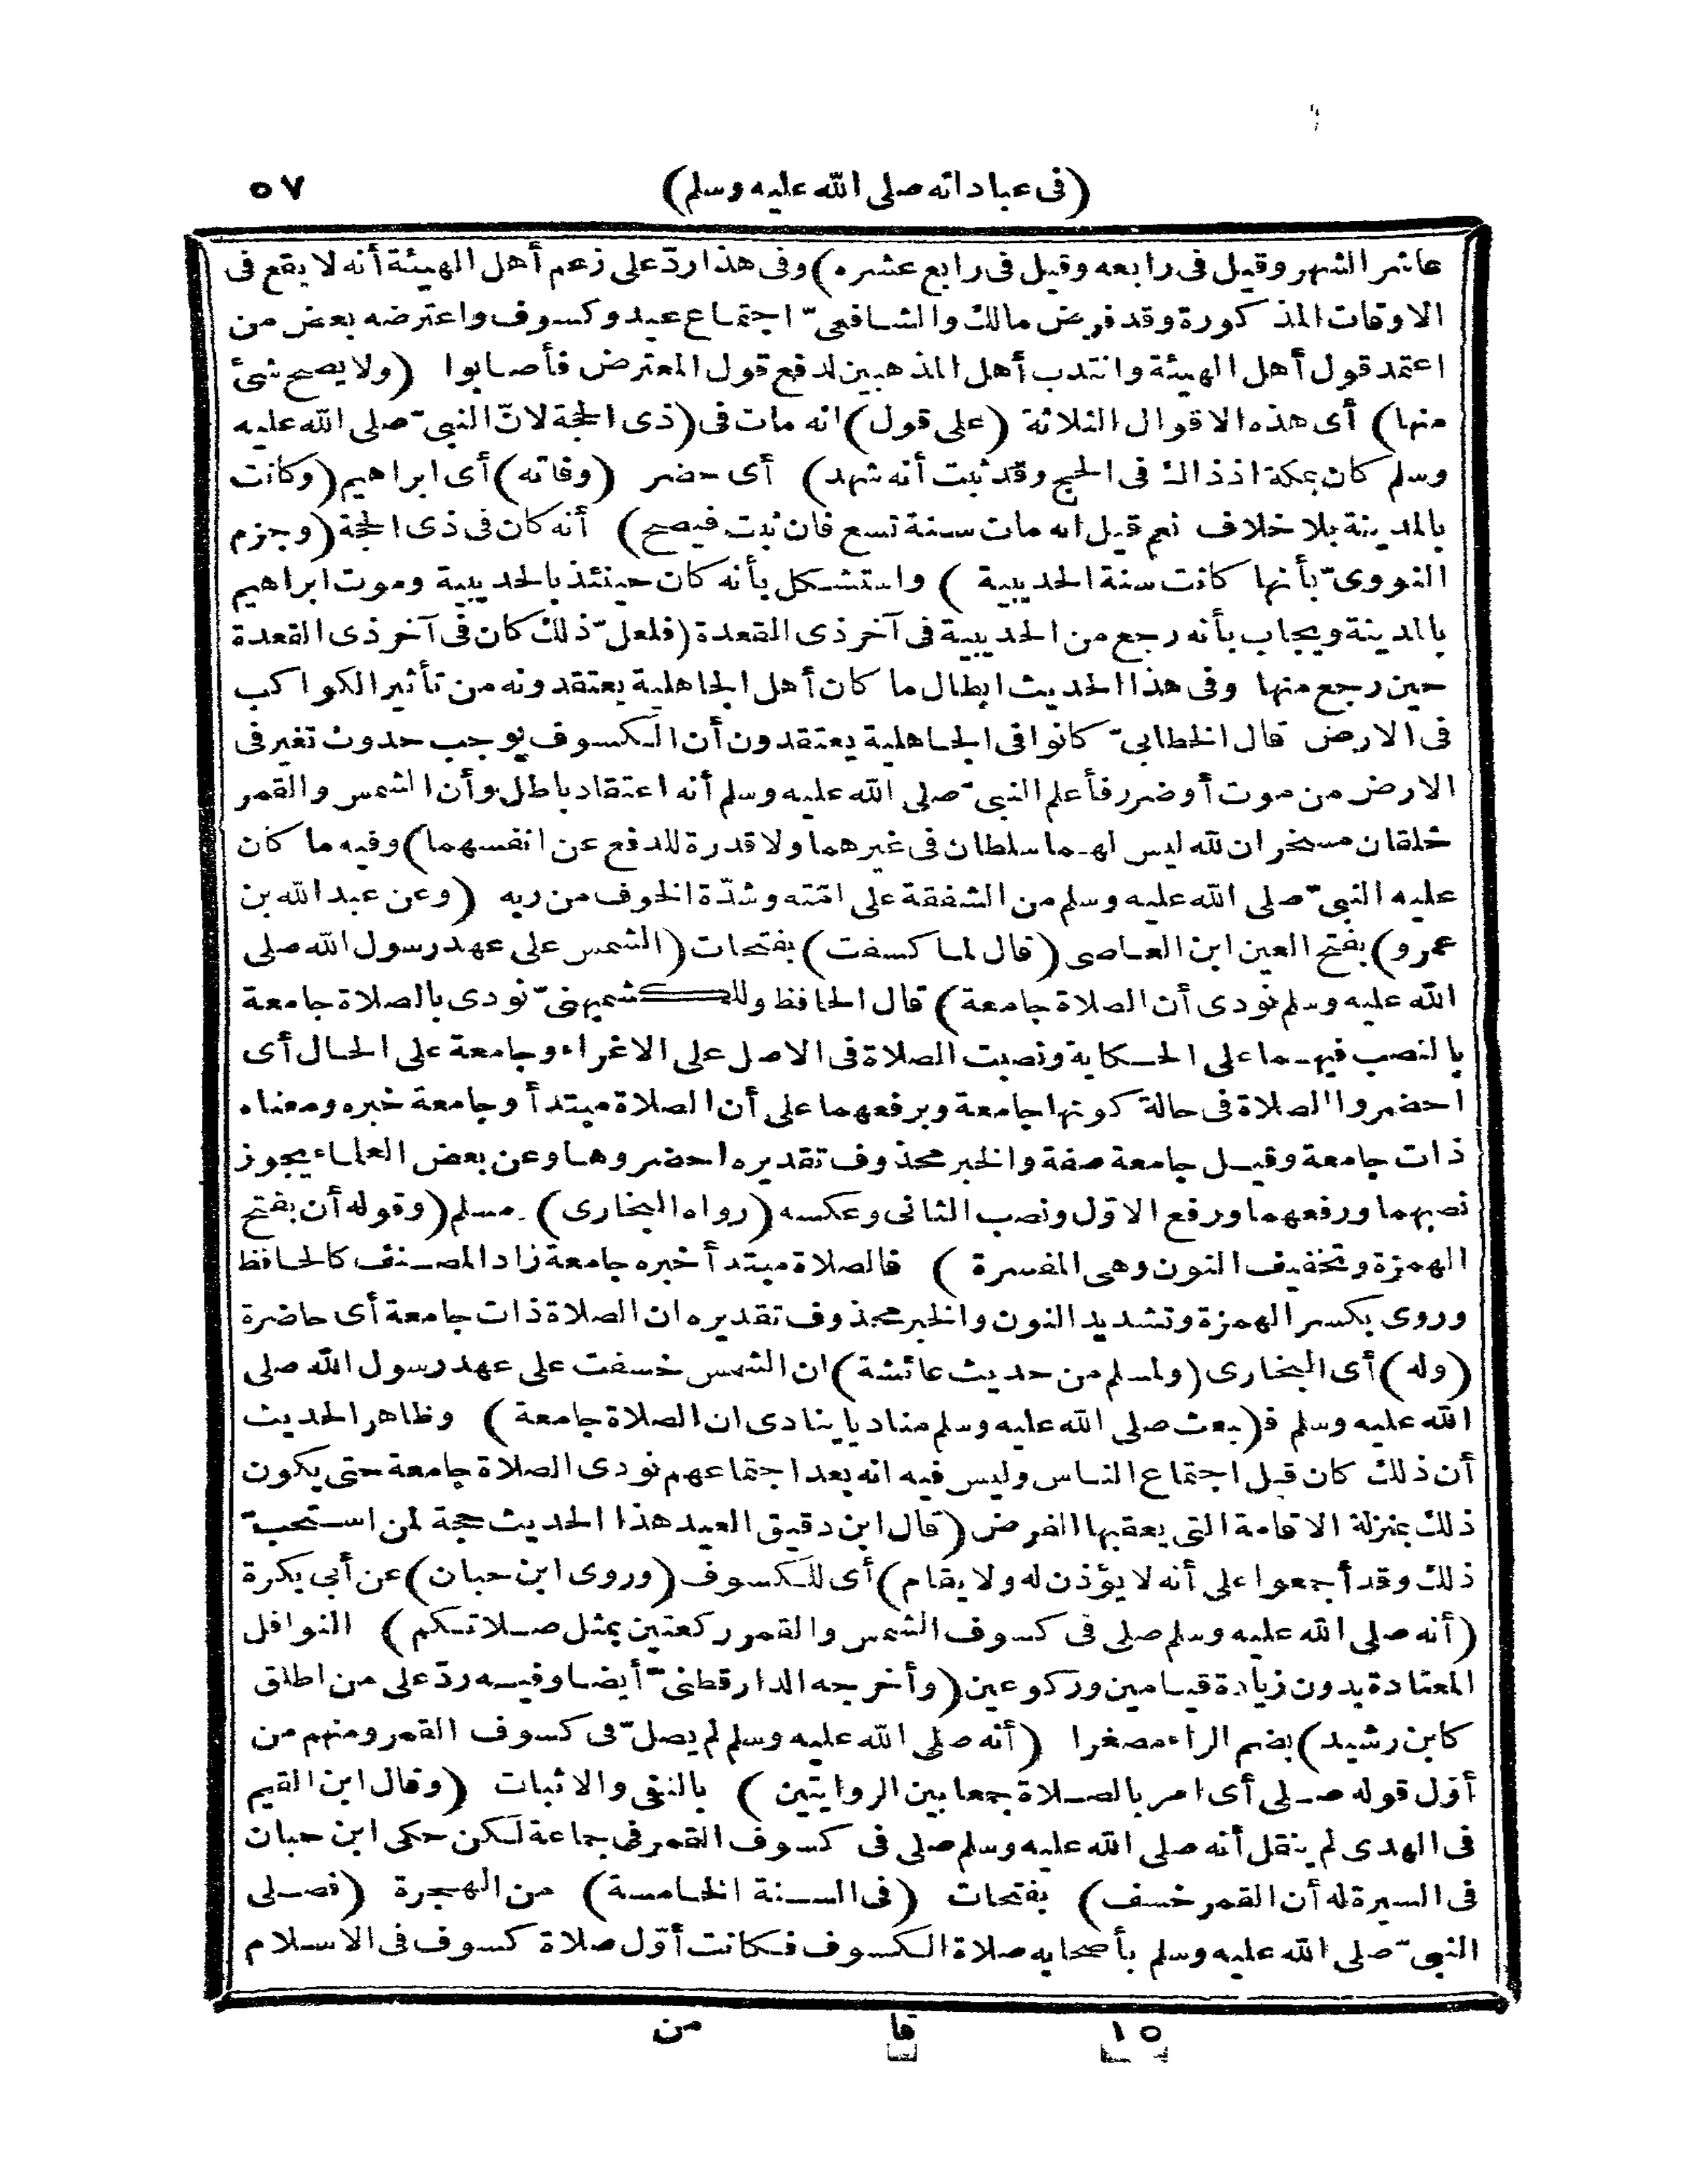 (فى عباداته صلى الله عليه وسلم) ٥٧
عاشر الشهر وقيل فى رابعه وقيل فى رابع عشره) وفى هذا ردّ على زعم أهل الهيئة أنه لا يقع فى
الاوقات المذكورة وقد فرض مالك والشافعىّ اجتماع عيد وكسوف واعترضه بعض من
اعتمد قول أهل الهيئة وانتدب أهل المذهبين لدفع قول المعترض فأصابوا (ولا يصح شئ
منها) أى هذه الاقوال الثلاثة (على قول) انه مات فى (ذى الحجة لانّ النبىّ صلى الله عليه
وسلم كان بمكة اذ ذاك فى الحج وقد ثبت أنه شهد) أى حضر (وفاته) أى ابراهيم (وكانت
بالمدينة بلا خلاف نعم قيل انه مات سنة تسع فان ثبت فيصح) أنه كان فى ذى الحجة (وجزم
النووىّ بأنها كانت سنة الحديبية) واستشكل بأنه كان حينئذ بالحديبية وموت ابراهيم
بالمدينة ويجاب بأنه رجع من الحديبية فى آخر ذى القعدة (فلعلّ ذلك كان فى آخر ذى القعدة
حين رجع منها وفى هذا الحديث ابطال ما كان أهل الجاهلية يعتقدونه من تأثير الكواكب
فى الارض قال الخطابىّ كانوا فى الجاهلية يعتقدون أن الكسوف يوجب حدوث تغير فى
الارض من موت أو ضرر فأعلم النبىّ صلى الله عليه وسلم أنه اعتقاد باطل وأن الشمس والقمر
خلقان مسخران لله ليس لهما سلطان فى غيرهما ولا قدرة للدفع عن انفسهما) وفيه ما كان
عليه النبىّ صلى الله عليه وسلم من الشفقة على امّته وشدّة الخوف من ربه (وعن عبد الله بن
عمرو) بفتح العين ابن العاصى (قال لما كسفت) بفتحات (الشمس على عهد رسول الله صلى
الله عليه وسلم نودى أن الصلاة جامعة) قال الحافظ وللكشميهنىّ نودى بالصلاة جامعة
بالنصب فيهما على الحكاية ونصبت الصلاة فى الاصل على الاغراء وجامعة على الحال أى
احضروا الصلاة فى حالة كونها جامعة وبرفعهما على أن الصلاة مبتدأ وجامعة خبره ومعناه
ذات جامعة وقيل جامعة صفة والخبر محذوف تقديره احضروها وعن بعض العلماء يجوز
نصبهما ورفعهما ورفع الاوّل ونصب الثانى وعكسه (رواه البخارى) مسلم (وقوله أن بفتح
الهمزة وتخفيف النون وهى المفسرة) فالصلاة مبتدأ خبره جامعة زاد المصنف كالحافظ
وروى بكسر الهمزة وتشديد النون والخبر محذوف تقديره ان الصلاة ذات جامعة أى حاضرة
(وله) أى البخارى (ولمسلم من حديث عائشة) ان الشمس خسفت على عهد رسول الله صلى
الله عليه وسلم ف(بعث صلى الله عليه وسلم مناديا ينادى ان الصلاة جامعة) وظاهر الحديث
أن ذلك كان قبل اجتماع الناس وليس فيه انه بعد اجتماعهم نودى الصلاة جامعة حتى يكون
ذلك بمنزلة الاقامة التى يعقبها الفرض (قال ابن دقيق العيد هذا الحديث حجة لمن استحبّ
ذلك وقد أجمعوا على أنه لا يؤذن له ولا يقام) أى للكسوف (وروى ابن حبان) عن أبى بكرة
(أنه صلى الله عليه وسلم صلى فى كسوف الشمس والقمر ركعتين بمثل صلاتكم) النوافل
المعتادة بدون زيادة قيامين وركوعين (وأخرجه الدارقطنىّ أيضا وفيه ردّ على من اطلق
كابن رشيد) بضم الراء مصغرا (أنه صلى الله عليه وسلم لم يصلّ فى كسوف القمر ومنهم من
أوّل قوله صلى أى امر بالصلاة جمعا بين الروايتين) بالنفى والاثبات (وقال ابن القيم
فى الهدى لم ينقل أنه صلى الله عليه وسلم صلى فى كسوف القمر فى جماعة لكن حكى ابن حبان
فى السيرة له أن القمر خسف) بفتحات (فى السنة الخامسة) من الهجرة (فصلى
النبىّ صلى الله عليه وسلم بأصحابه صلاة الكسوف فكانت أوّل صلاة كسوف فى الاسلام
١٥ قا من